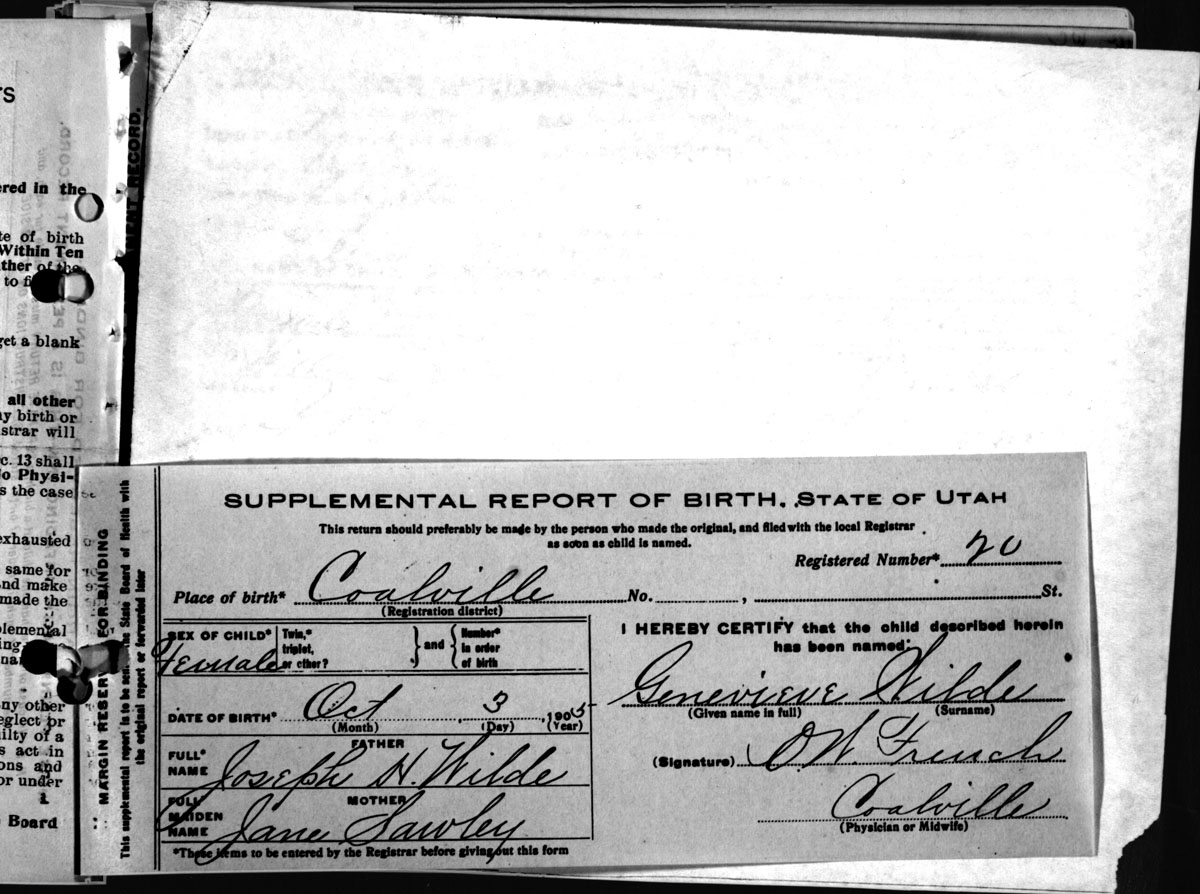 TS
ered in the
te of birth
Within Ten
ther of the
to
get a blank
all other
ny birth or
strar will
c. 13 shall
No Physi-
s the case
exhausted
same for
and make
made the
plemental
ny other
neglect or
ilty of a
s act in
ons and
or under
Board
MARGIN RESERVED FOR BINDING
This supplemental report is to be sent to the State Board of Health with
the original report or forwarded later
SUPPLEMENTAL REPORT OF BIRTH. STATE OF UTAH
This return should preferably be made by the person who made the original, and filed with the local Registrar
as soon as child is named.
Registered Number* 20
Place of birth* Coalville No. , St.
(Registration district)
SEX OF CHILD* Female
Twin,* triplet, or other? } and { Number* in order of birth
DATE OF BIRTH* Oct , 3 , 1905
(Month) (Day) (Year)
FATHER
FULL* NAME Joseph H. Wilde
MOTHER
FULL MAIDEN NAME Jane Sawley
*These items to be entered by the Registrar before giving out this form
I HEREBY CERTIFY that the child described herein
has been named:
Genevieve Wilde
(Given name in full) (Surname)
(Signature) O W. French
Coalville
(Physician or Midwife)